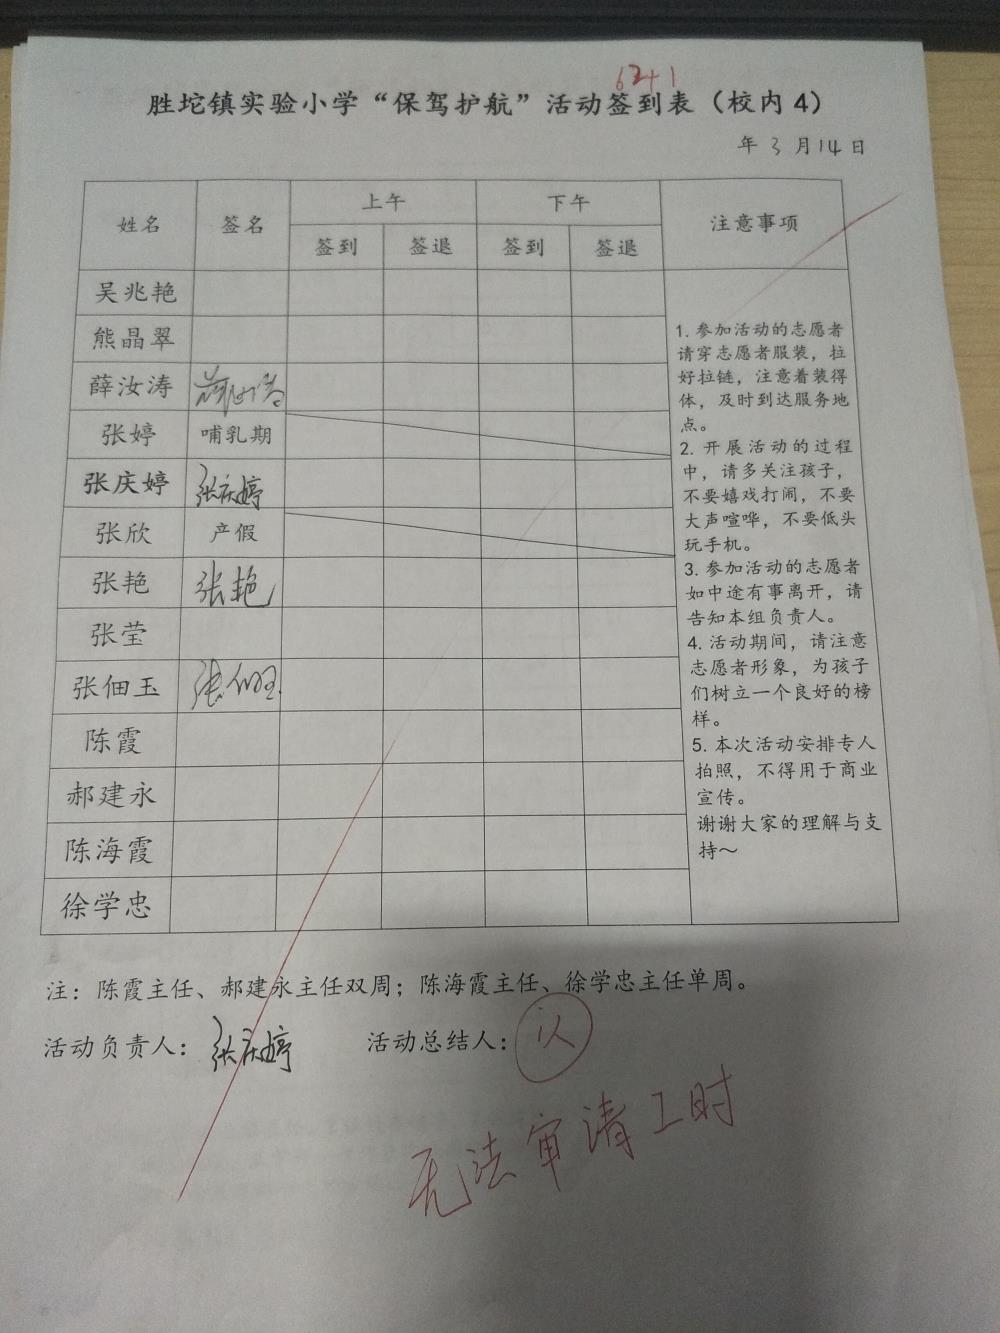 6241
胜坨镇实验小学“保驾护航”活动签到表（校内4）
年 3 月 14 日
姓名 签名 上午 下午 注意事项
签到 签退 签到 签退
吴兆艳
熊晶翠
薛汝涛 薛汝涛
张婷 哺乳期
张庆婷 张庆婷
张欣 产假
张艳 张艳
张莹
张佃玉 张佃玉
陈霞
郝建永
陈海霞
徐学忠
1. 参加活动的志愿者
请穿志愿者服装，拉
好拉链，注意着装得
体，及时到达服务地
点。
2. 开展活动的过程
中，请多关注孩子，
不要嬉戏打闹，不要
大声喧哗，不要低头
玩手机。
3. 参加活动的志愿者
如中途有事离开，请
告知本组负责人。
4. 活动期间，请注意
志愿者形象，为孩子
们树立一个良好的榜
样。
5. 本次活动安排专人
拍照，不得用于商业
宣传。
谢谢大家的理解与支
持～
注：陈霞主任、郝建永主任双周；陈海霞主任、徐学忠主任单周。
活动负责人：张庆婷 活动总结人：
无法审请工时